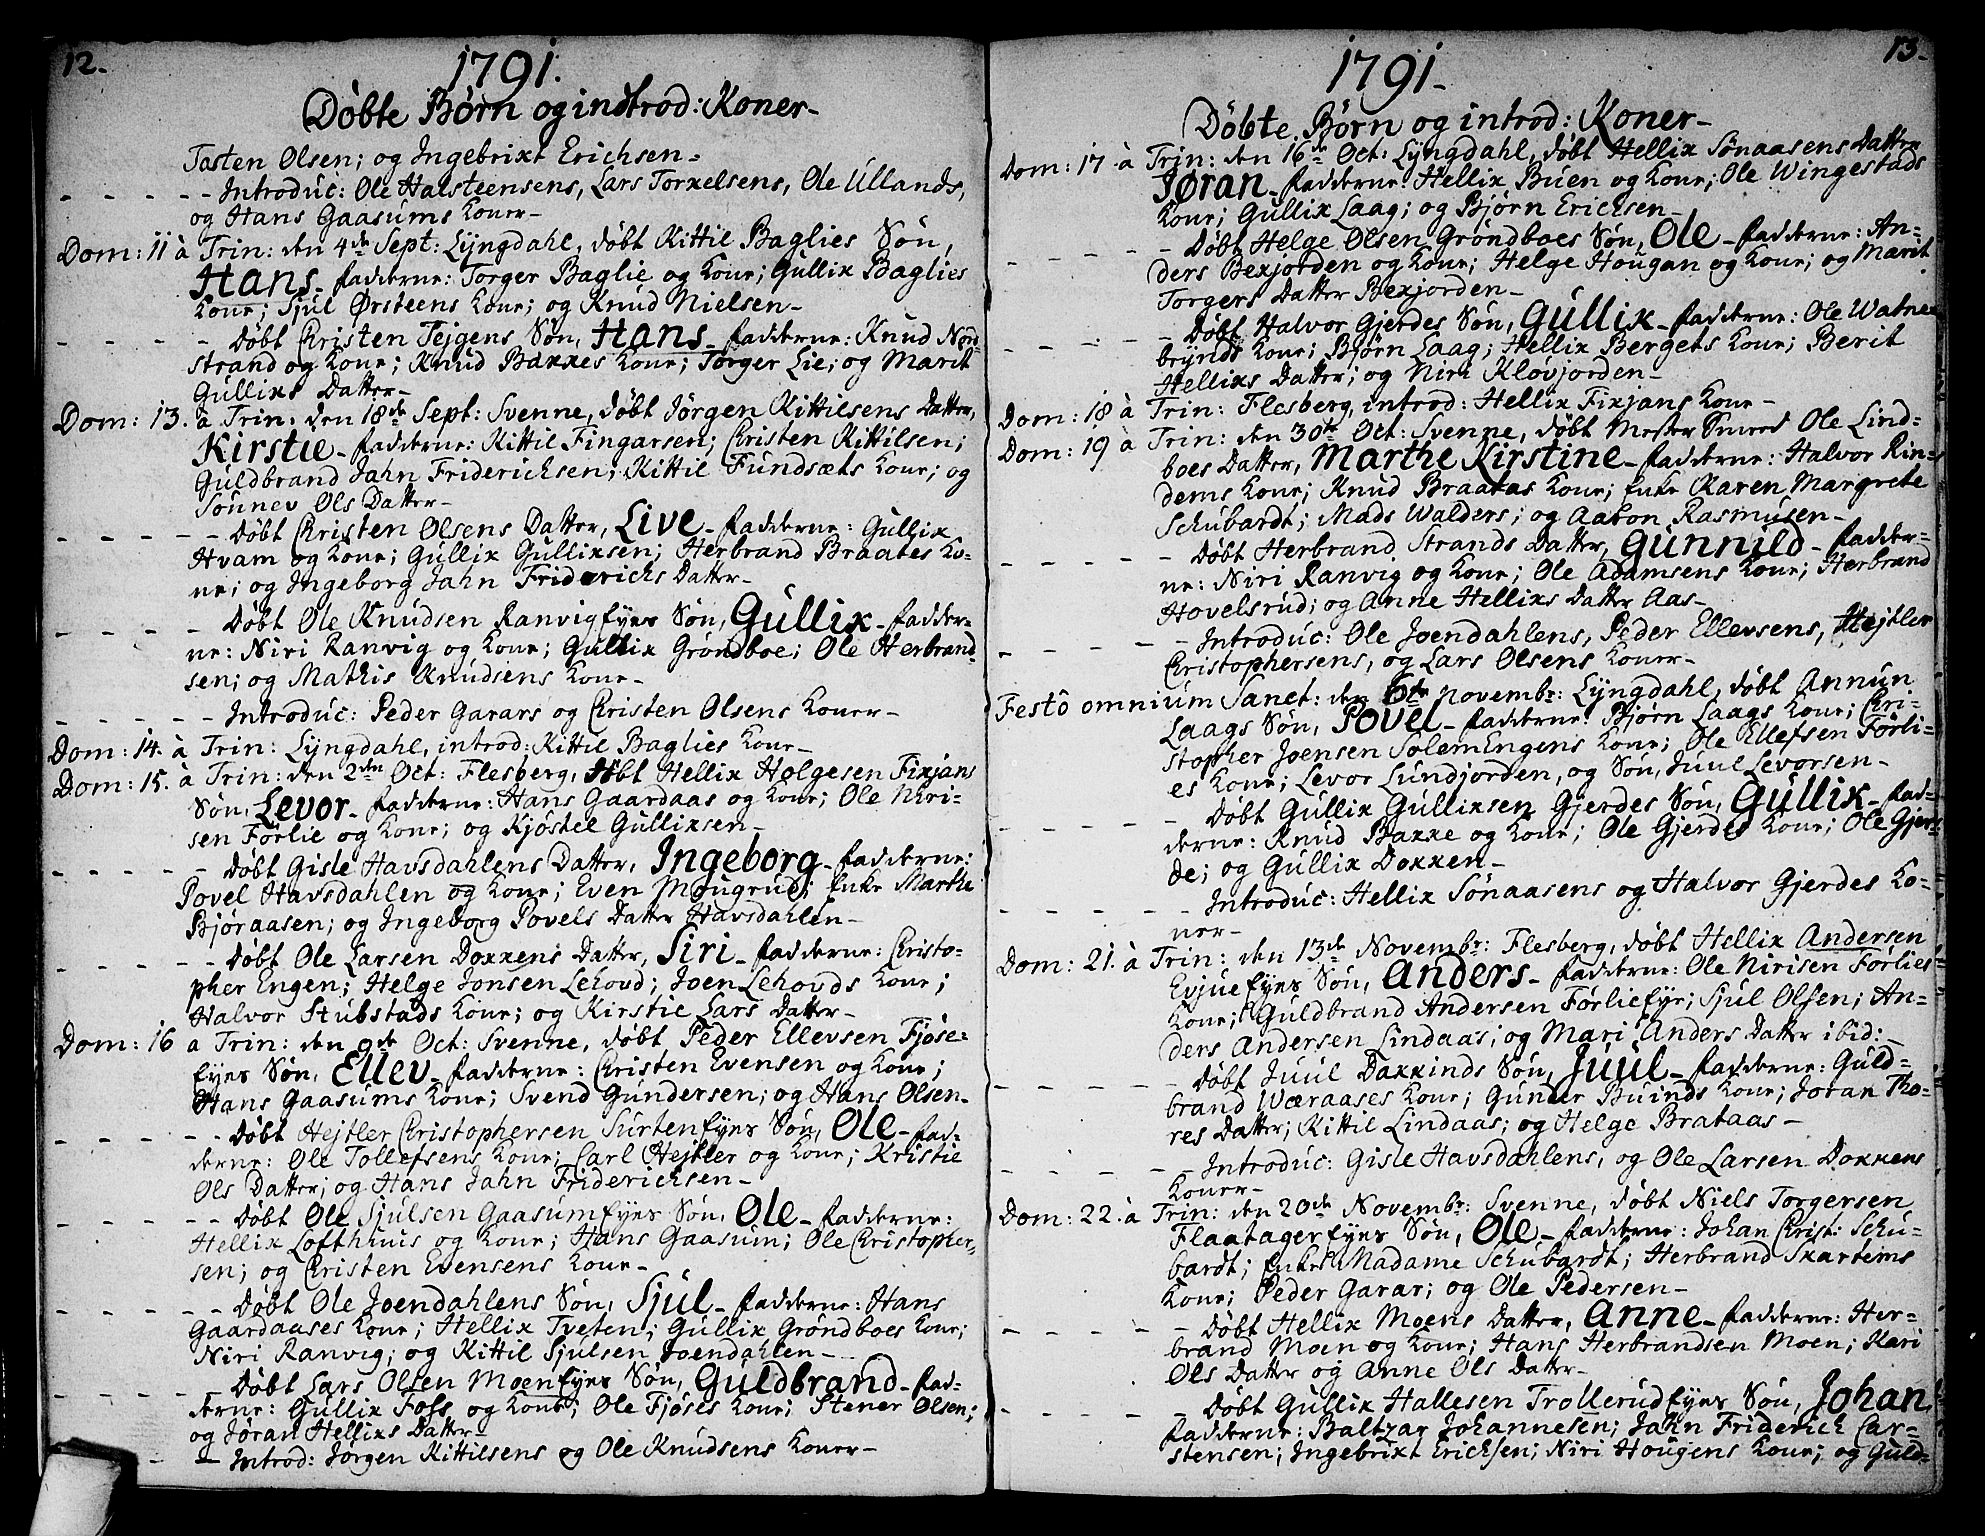 12.
1791.
Døbte Børn og indtrod: Koner-
Tasten Olsen; og Ingebrixt Erichsen-
- - - - - - Introduc: Ole Halsteensens, Lars Torxelsens, Ole Ullands,
og Hans Gaasums Koner-
Dom: 11 à Trin: den 4de Sept: Lyngdahl, døbt Kittil Baglies Søn,
Hans- fadderne: Torger Baglie og Kone; Gullix Baglies
Kone; Sjul Ørsteens Kone; og Knud Nielsen-
- - - - - Døbt Christen Tejgens Søn, Hans- fadderne: Knud Nord-
strand og Kone; Knud Baxxes Kone; Torger Lie; og Marit
Gullixs Datter-
Dom: 13. à Trin: den 18de Sept: Svenne, døbt Jørgen Kittilsens Datter,
Kirstie- fadderne: Kittil Fingarsen; Christen Kittilsen;
Guldbrand Jahn Friderichsen; Kittil Fundsæts Kone; og
Sønnev Ols Datter-
- - - - - - Døbt Christen Olsens Datter, Live- fadderne: Gullix
Hvam og Kone; Gullix Gullixsen; Herbrand Braates Ko-
ne; og Ingeborg Jahn Friderichs Datter-
- - - - - Døbt Ole Knudsen Ranvigeyes Søn, Gullix- fadder-
ne: Niri Ranvig og Kone; Gullix Grøndboe; Ole Herbrand-
sen; og Mathis Knudsens Kone-
- - - - - - Introduc: Peder Garars og Christen Olsens Koner-
Dom: 14. à Trin: Lyngdahl, introd: Kittil Baglies Kone-
Dom: 15. à Trin: den 2den Oct: Flesberg, døbt Hellix Helgesen Fixjans
Søn, Levor- fadderne: Hans Gaardaas og Kone; Ole Niri-
sen Førlie og Kone; og Kjøstel Gullixsen-
- - - - - - Døbt Gisle Havsdahlens Datter, Ingeborg- fadderne:
Povel Havsdahlen og Kone; Even Mougrud; Enke Marthe
Bjøraasen; og Ingeborg Povels Datter Havsdahlen-
- - - - - - Døbt Ole Larsen Doxxens Datter, Siri- fadderne: Christo-
pher Engen; Helge Jonsen Lehovd; Joen Lehovds Kone;
Halvor Stubstads Kone; og Kirstie Lars Datter-
Dom: 16 à Trin: den 9de Oct: Svenne, døbt Peder Ellevsen Fjøse-
eyes Søn, Ellev- fadderne: Christen Evensen og Kone;
Hans Gaasums Kone; Svend Gundersen; og Hans Olsen-
- - - - - - Døbt Hejtler Christophersen Surteneyes Søn, Ole- fad-
derne: Ole Tollefsens Kone; Carl Hejtler og Kone; Kristie
Ols Datter; og Hans Jahn Friderichsen-
- - - - - - Døbt Ole Sjulsen Gaasumeyes Søn, Ole- fadderne:
Hellix Lofthuus og Kone; Hans Gaasum; Ole Christopher-
sen; og Christen Evensens Kone-
- - - - - - Døbt Ole Joendahlens Søn, Sjul- fadderne: Hans
Gaardaases Kone; Hellix Tveten; Gullix Grøndboes Kone;
Niri Ranvig; og Kittil Sjulsen Joendahlen-
- - - - - - Døbt Lars Olsen Moeneyes Søn, Guldbrand- fad-
derne: Gullix Foss og Kone; Ole Fjøses Kone; Stener Olsen;
og Jøran Hellixs Datter-
- - Introd: Jørgen Kittilsens og Ole Knudsens Koner-
13-
1791-
Døbte Børn og introd: Koner-
Dom: 17. à Trin: den 16de Oct: Lyngdahl, døbt Hellix Sønaasens Datter
Jøran- fadderne: Hellix Buen og Kone; Ole Wingestads
Kone; Gullix Laag; og Bjørn Erichsen-
- - - - - Døbt Helge Olsen Grøndboes Søn, Ole- fadderne: An-
ders Bexjorden og Kone; Helge Hougan og Kone; og Marit
Torgers Datter Bexjorden-
- - - - - Døbt Halvor Gjerdes Søn, Gullix- fadderne: Ole Watne-
brynds Kone; Bjørn Laag; Hellix Bergets Kone; Berit
Hellixs Datter; og Niri Kløvjorden-
Dom: 18 à Trin: Flesberg, introd: Hellix Fixjans Kone-
Dom: 19 à Trin: den 30te Oct: Svenne, døbt Mester Smeed Ole Lind-
boes Datter, Marthe Kirstine- fadderne: Halvor Rin-
dems Kone; Knud Braatas Kone; Enke Karen Margrete
Schubardt; Mads Walders; og Aaron Rasmusen-
- - - - - Døbt Herbrand Strands Datter, Gunnild- fadder-
ne: Niri Ranvig og Kone; Ole Adamsens Kone; Herbrand
Hovelsrud; og Anne Hellixs Datter Aas-
- - - - - Introduc: Ole Joendahlens, Peder Ellevsens, Hejtler
Christophersens, og Lars Olsens Koner-
Festô omnium Sanct: den 6te Novembr: Lyngdahl, døbt Annun
Laags Søn, Povel- fadderne: Bjørn Laags Kone; Chri-
stopher Joensen SolemEngens Kone; Ole Ellefsen Førli-
es Kone; Levor Lundjorden, og Søn, Juul Levorsen-
- - - - - Døbt Gullix Gullixsen Gjerdes Søn, Gullix- fad-
derne: Knud Baxxe og Kone; Ole Gjerdes Kone; Ole Gjer-
de; og Gullix Doxxen-
- - - - - Introduc: Hellix Sønaasens og Halvor Gjerdes Ko-
ner-
Dom: 21. à Trin: den 13de Novembr: Flesberg, døbt Hellix Andersen
Evjueeyes Søn, Anders- fadderne: Ole Nirisen Førlies
Kone; Guldbrand Andersen Førlieeye; Sjul Olsen; An-
ders Andersen Lindaas; og Mari Anders Datter ibid:-
- - - - - Døbt Juul Daxxinds Søn, Juul- fadderne: Guld-
brand Wæraases Kone; Gunder Buinds Kone; Joran Tho-
res Datter; Kittil Lindaas; og Helge Brataas-
- - - - - Introduc: Gisle Havsdahlens, og Ole Larsen Doxxens
Koner-
Dom: 22. à Trin: den 20de Novembr: Svenne, døbt Niels Torgersen
Flaatagereyes Søn, Ole- fadderne: Johan Christ: Schu-
bardt; Enke Madame Schubardt; Herbrand Skartems
Kone; Peder Garar; og Ole Pedersen-
- - - - - Døbt Hellix Moens Datter, Anne- fadderne: Her-
brand Moen og Kone; Hans Herbrandsen Moen; Kari
Ols Datter og Anne Ols Datter-
- - - - - Døbt Gullix Hallesen Trollerudeyes Søn, Johan
fadderne: Baltzar Johannesen; Jahn Friderich Car-
stensen; Ingebrixt Erichsen; Niri Hougens Kone; og Guld-